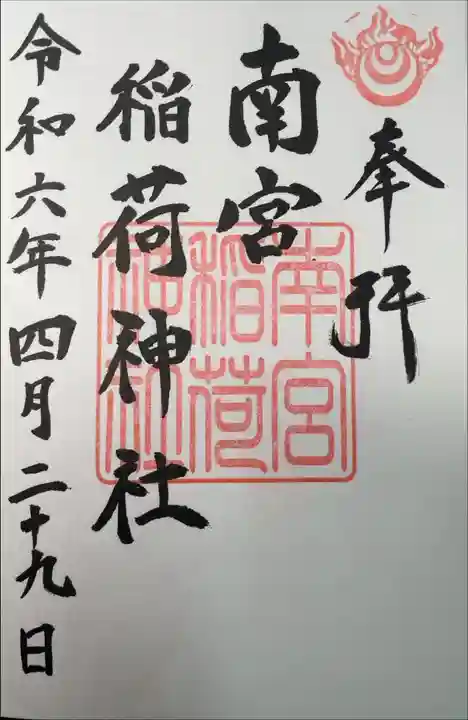 奉拝
南宮
稲荷神社
令和六年四月二十九日
南宮
稲荷
神社